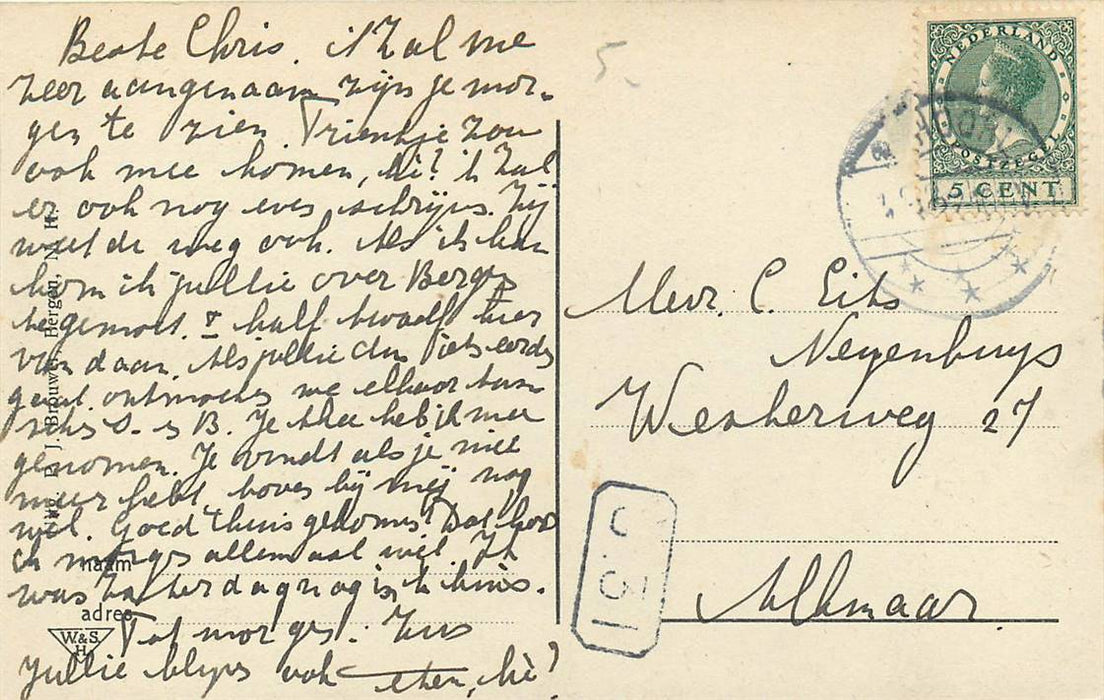 Beste Chris. ik zal me
zeer aangenaam zijn je mor-
gen te zien. Trientje zou
ook mee komen, hè? ik zal
er ook nog even schrijven. Zij
weet de weg ook. Als ik kan
kom ik jullie over Bergen
tegemoet. ± half twaalf hier
vandaan. Als jullie dus iets eerder
gaat ontmoeten we elkaar tus-
schen S. en B. Je thee heb ik mee
genomen. Je vindt als je niet
meer hebt, boven bij mij nog
wel. Goed thuis gekomen? Dat hoor
ik morgen allemaal wel. Ik
was Zaterdag nog in thuis.
Tot morgen. Zus
Jullie blijven ook eten, hè?
Uitg. P. J. Brouwer, Bergen, N. H.
naam
adres
W.&S.
H.
5.
NEDERLAND
POSTZEGEL
5 CENT
HOORN
Mevr. C. Eits
Neyenhuys
Westerweg 27
Alkmaar.